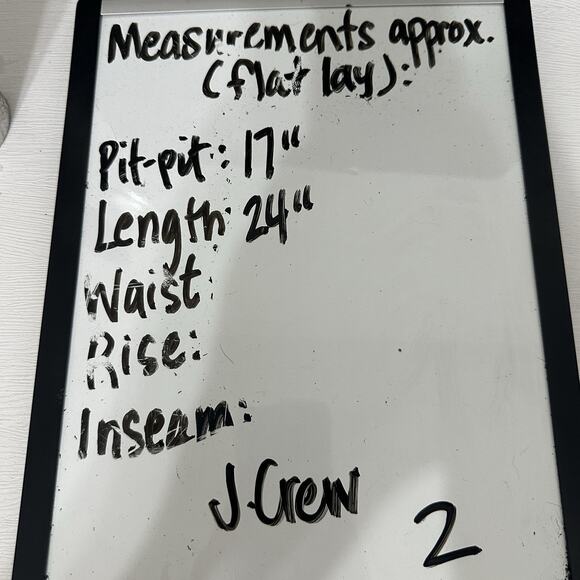 Measurements approx.
(flat lay):
Pit-pit: 17"
Length: 24"
Waist:
Rise:
Inseam:
J.Crew
2